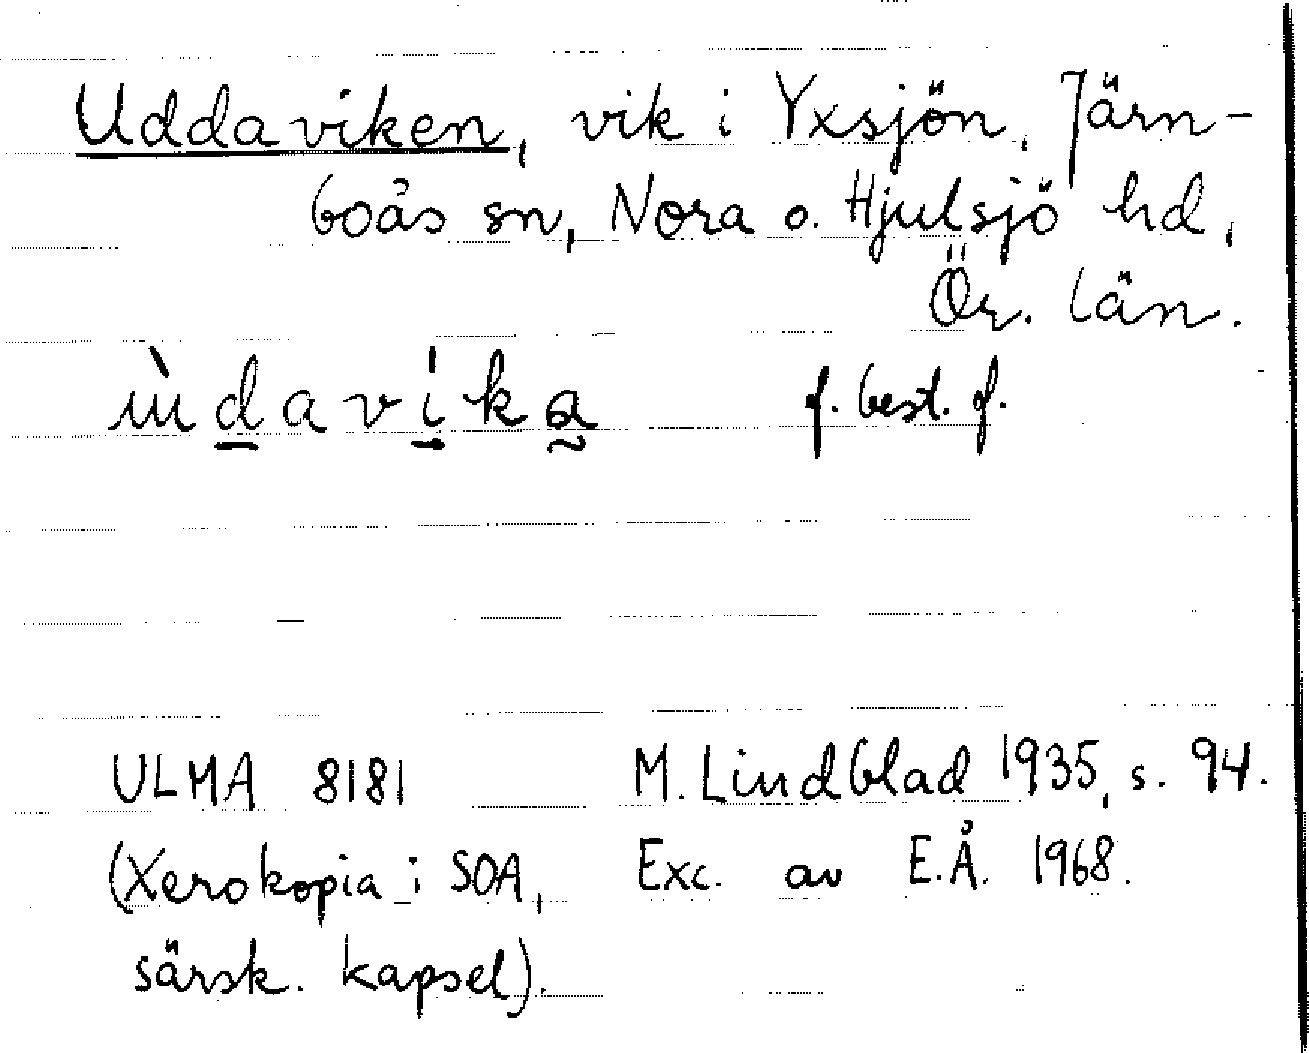 Uddaviken, vik i Yxsjön, Järn-
boås sn, Nora o. Hjulsjö hd,
Ör. län.
f. best. f.
ULMA 8181 M. Lindblad 1935, s. 94.
(Xerokopia i SOA, Exc. av E.Å. 1968.
särsk. kapsel).